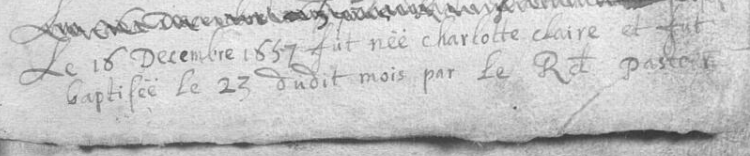 Le 16 Decembre 1657 fut nëë charlotte claire et fut
baptisëë le 23 dudit mois par Le Rd pasteur